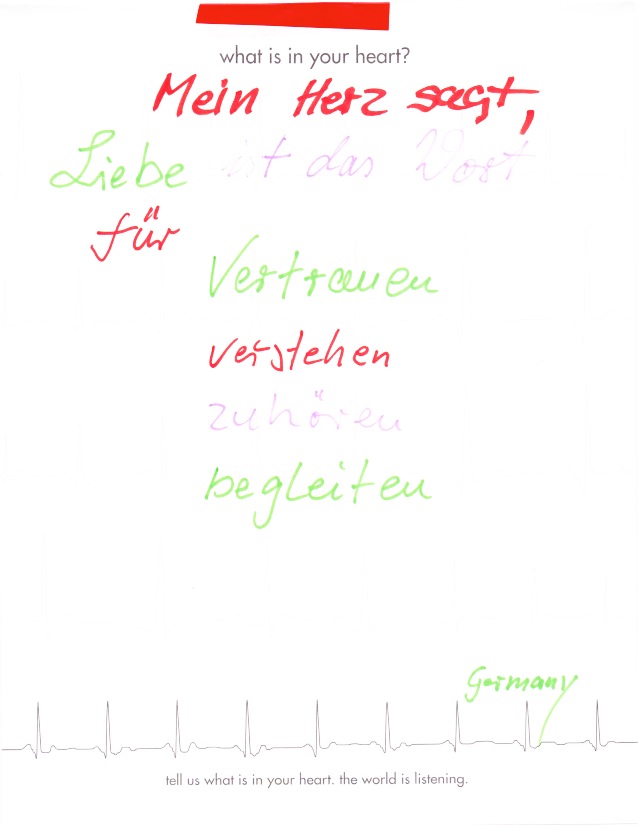 what is in your heart?
Mein Herz sagt,
Liebe ist das Wort
für
Vertrauen
verstehen
zuhören
begleiten
Germany
tell us what is in your heart. the world is listening.